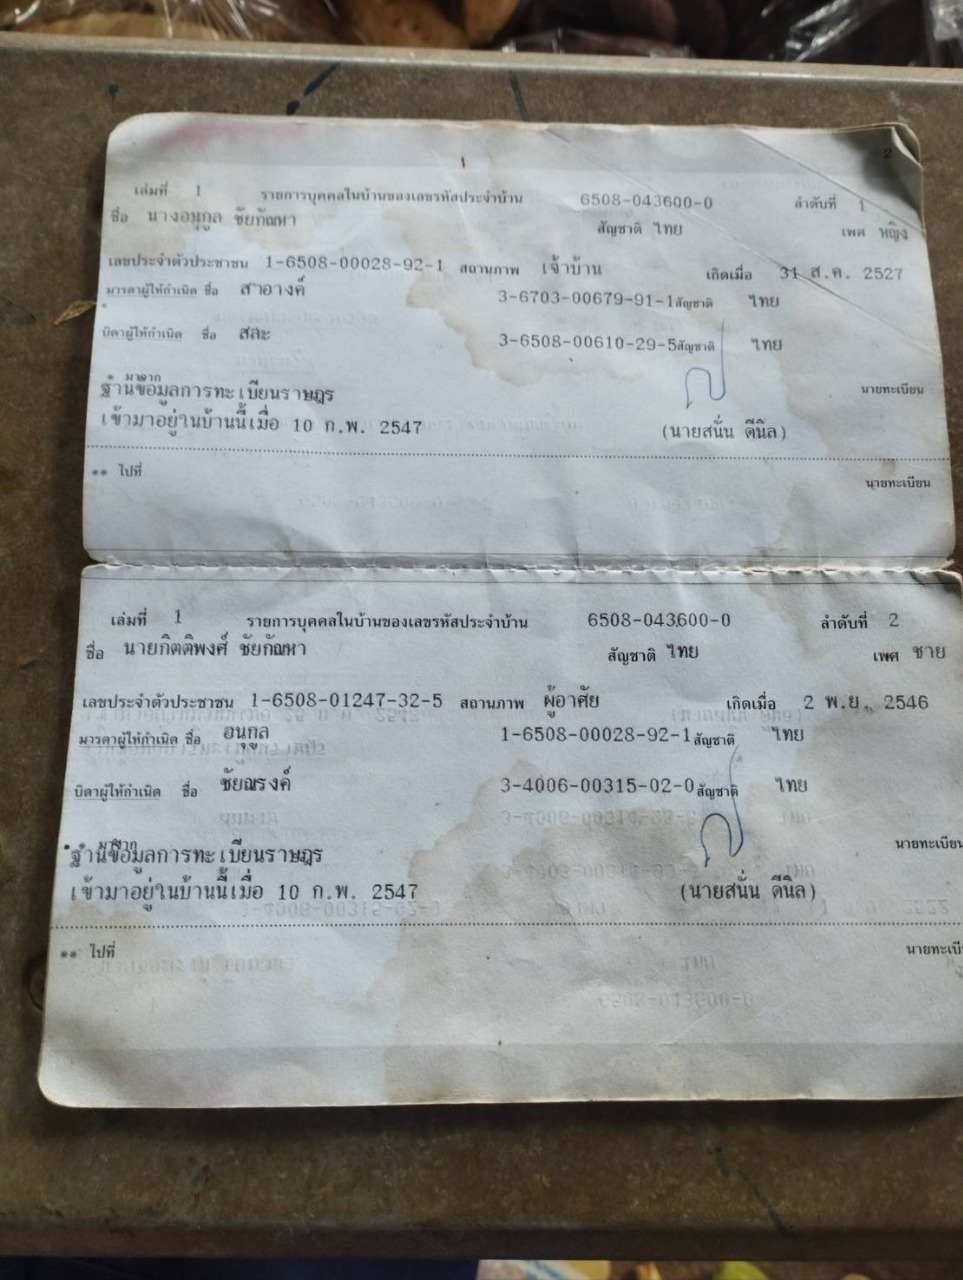 1
2
เล่มที่ 1 รายการบุคคลในบ้านของเลขรหัสประจำบ้าน 6508-043600-0 ลำดับที่ 1
ชื่อ นางอนุกูล ชัยกัณหา สัญชาติ ไทย เพศ หญิง
เลขประจำตัวประชาชน 1-6508-00028-92-1 สถานภาพ เจ้าบ้าน เกิดเมื่อ 31 ส.ค. 2527
มารดาผู้ให้กำเนิด ชื่อ สำอางค์ 3-6703-00679-91-1 สัญชาติ ไทย
บิดาผู้ให้กำเนิด ชื่อ สละ 3-6508-00610-29-5 สัญชาติ ไทย
* มาจาก
ฐานข้อมูลการทะเบียนราษฎร นายทะเบียน
เข้ามาอยู่ในบ้านนี้เมื่อ 10 ก.พ. 2547 (นายสนั่น ดีนิล)
** ไปที่ นายทะเบียน
เล่มที่ 1 รายการบุคคลในบ้านของเลขรหัสประจำบ้าน 6508-043600-0 ลำดับที่ 2
ชื่อ นายกิตติพงศ์ ชัยกัณหา สัญชาติ ไทย เพศ ชาย
เลขประจำตัวประชาชน 1-6508-01247-32-5 สถานภาพ ผู้อาศัย เกิดเมื่อ 2 พ.ย. 2546
มารดาผู้ให้กำเนิด ชื่อ อนุกูล 1-6508-00028-92-1 สัญชาติ ไทย
บิดาผู้ให้กำเนิด ชื่อ ชัยณรงค์ 3-4006-00315-02-0 สัญชาติ ไทย
* มาจาก
ฐานข้อมูลการทะเบียนราษฎร นายทะเบียน
เข้ามาอยู่ในบ้านนี้เมื่อ 10 ก.พ. 2547 (นายสนั่น ดีนิล)
** ไปที่